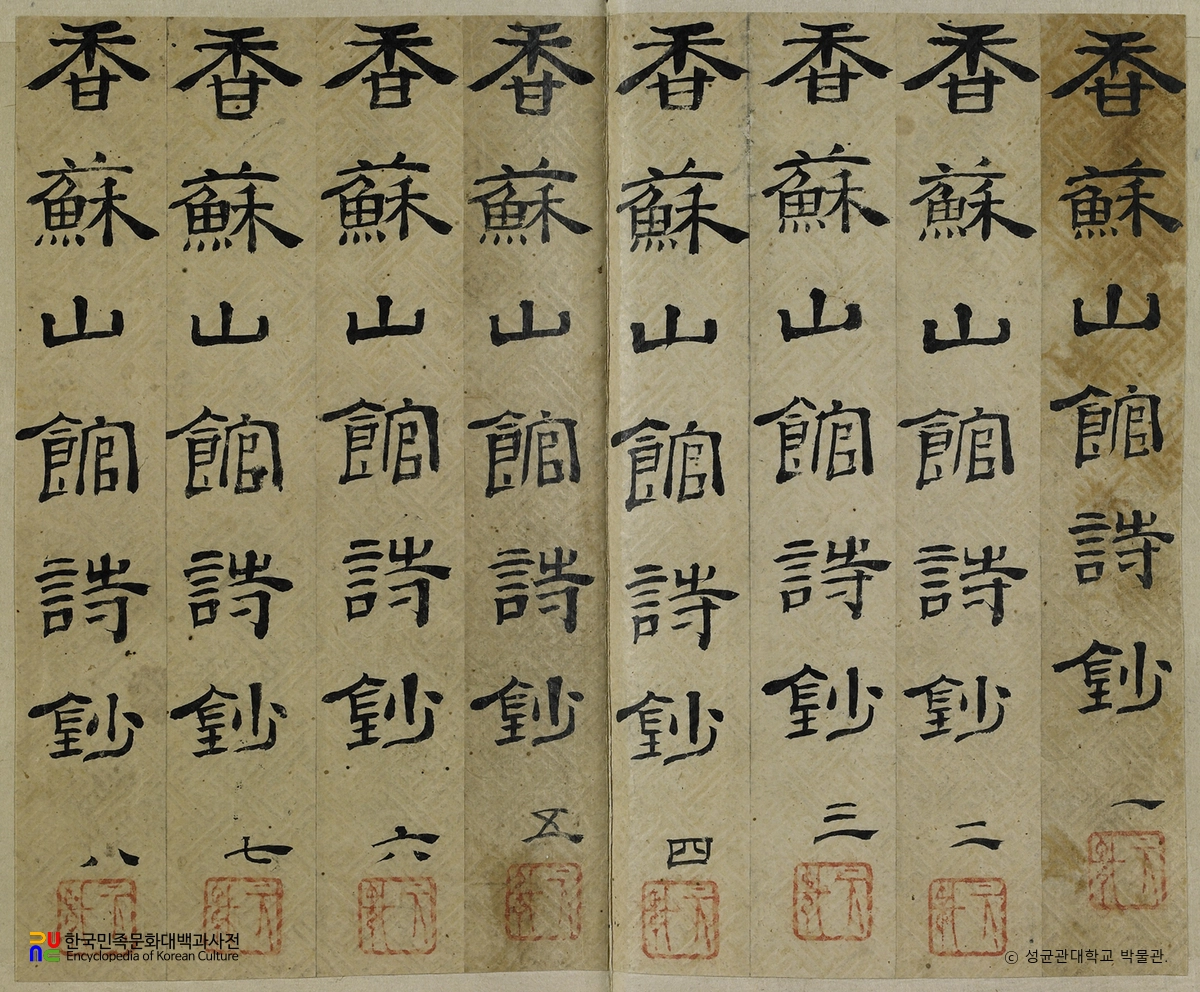 香蘇山館詩鈔 一
香蘇山館詩鈔 二
香蘇山館詩鈔 三
香蘇山館詩鈔 四
香蘇山館詩鈔 五
香蘇山館詩鈔 六
香蘇山館詩鈔 七
香蘇山館詩鈔 八
한국민족문화대백과사전
Encyclopedia of Korean Culture
ⓒ 성균관대학교 박물관.